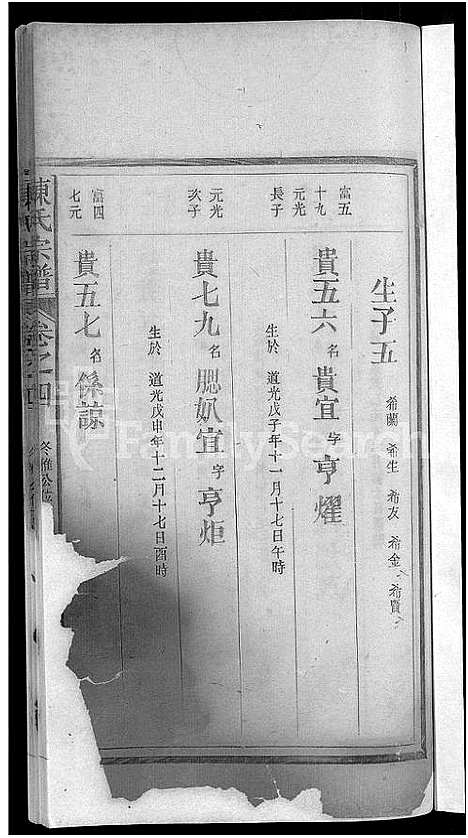 生子五 希蘭 希生 希友 希金 希賢
富五十九元光長子
貴五六 名 貴宜 字 亨燿
生於 道光戊子年十一月十七日午時
元光次子
貴七九 名 腮奴宜 字 亨炬
生於 道光戊申年十二月十七日酉時
富四七元
貴五七 名 係諒
陳氏宗譜 卷之四
FamilySearch